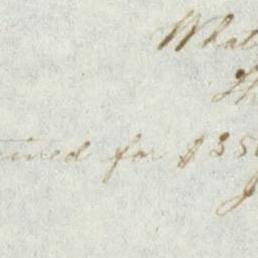 What
Th
ined for $350